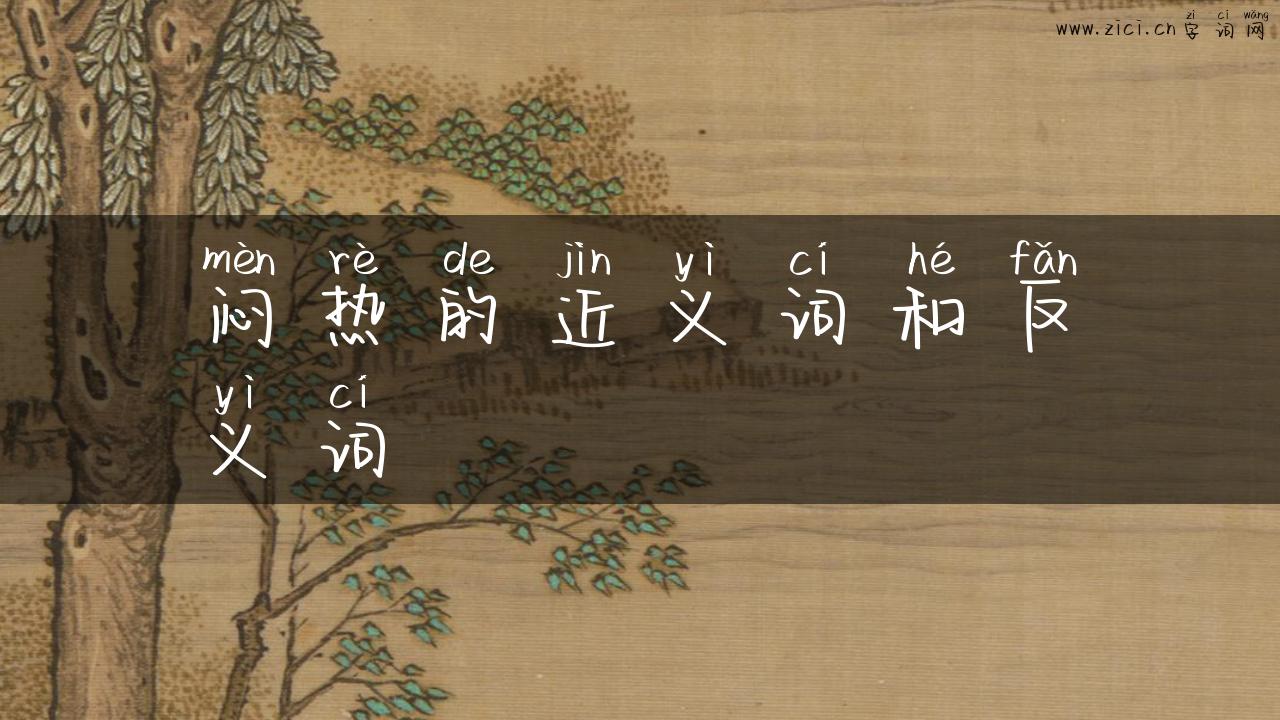 zì cí wǎng
www.zici.cn 字词网
mèn rè de jìn yì cí hé fǎn
闷热的近义词和反
yì cí
义词